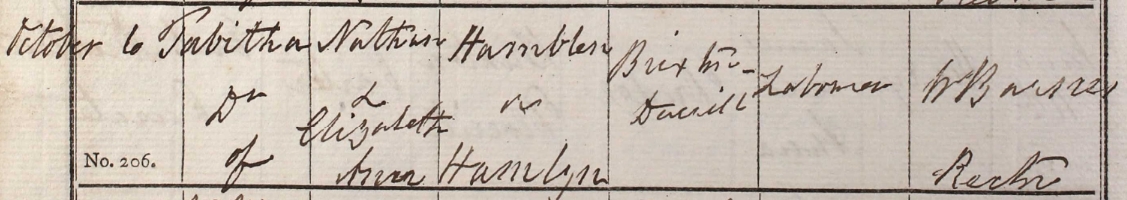 October 6
No. 206.
Tabitha
Dr
of
Nathan
&
Elizabeth
Ann
Hamblen
or
Hamlyn
Brixton-
Daverill
Labourer
W Barnes
Rector